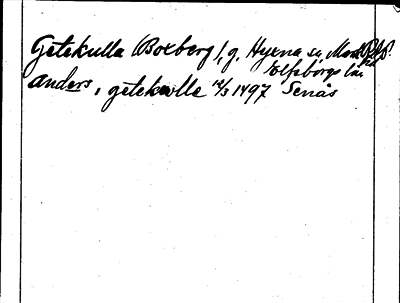 Getekulla Boxberg f, g. Hyxna sn, Mark
Elfsborgs län
anders, getekwlle 14/3 1497 Senäs